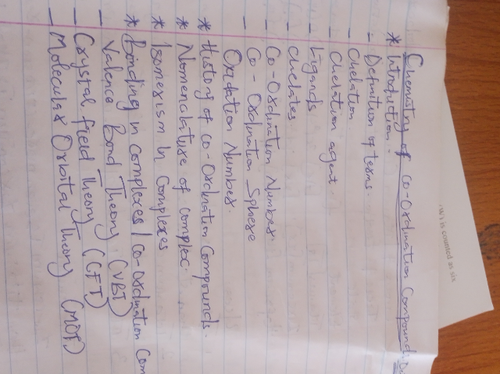 Chemistry of Co-Ordination Compounds
* Introduction:
- Definition of terms
- Chelation
- Chelation agent
- Ligands
- Chelates
- Co-Ordination Number
- Co-Ordination Sphere
Oxidation Number
* History of Co-Ordination Compounds.
* Nomenclature of complex.
* Isomerism in Complexes
* Bonding in complexes / co-ordination Com
- Valence Bond Theory (VBT)
- Crystal field theory (CFT)
- Molecular Orbital theory (MOT)